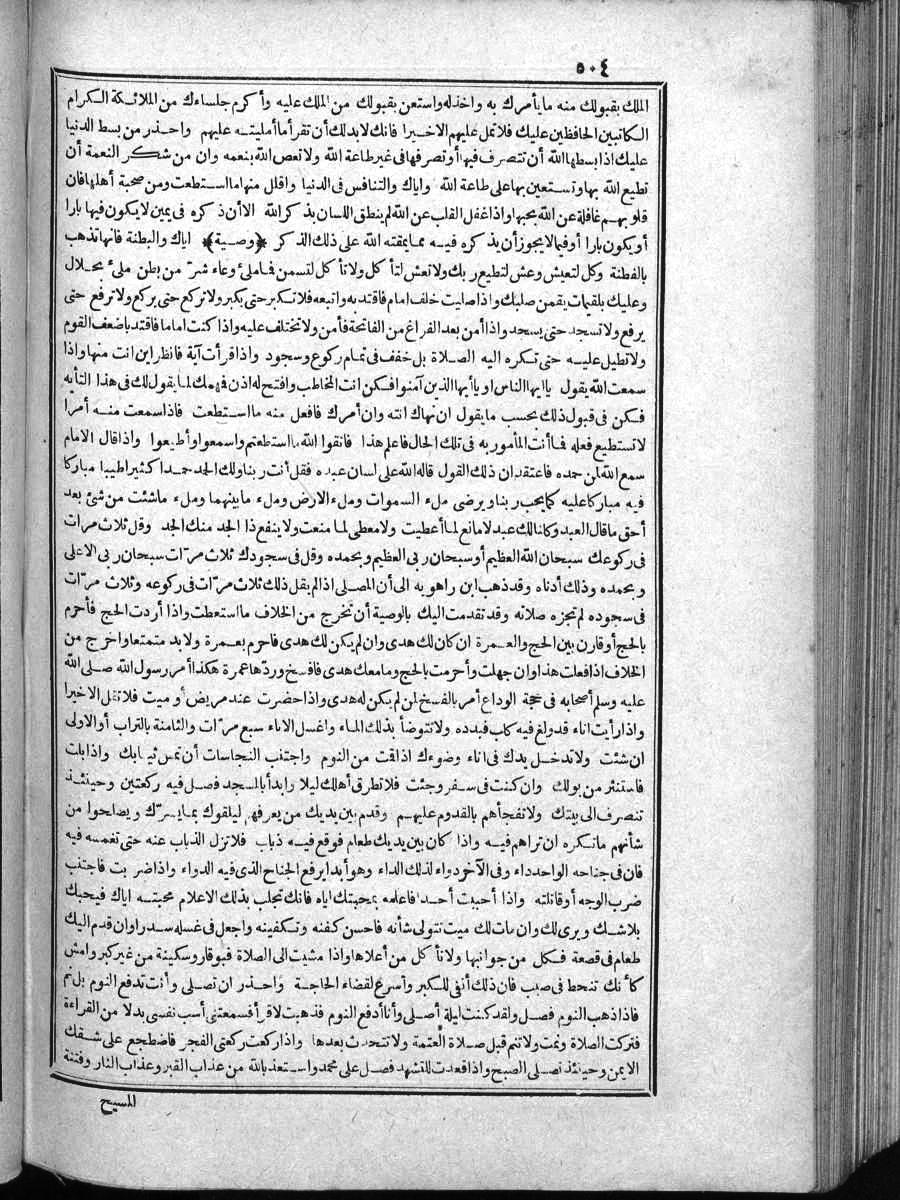 ٥٠٤
الملك بقبولك منه ما يأمرك به واخذله واستعن بقبولك من الملك عليه وأكرم جلساءك من الملائكة الكرام
الكاتبين الحافظين عليك فلا تمل عليهم الا خيرا فانك لابد لك أن تقرأ ما أمليته عليهم واحذر من بسط الدنيا
عليك اذا بسطها الله أن تتصرف فيها أو تصرفها فى غير طاعة الله ولا تعص الله بنعمه وان من شكر النعمة أن
تطيع الله بها وتستعين بها على طاعة الله واياك والتنافس فى الدنيا واقلل منها ما استطعت ومن صحبة أهلها فان
قلوبهم غافلة عن الله بحبها واذا غفل القلب عن الله لم ينطق اللسان بذكر الله الا أن ذكره فى يمين لا يكون فيها بارا
أو يكون بارا أو فيما لا يجوز أن يذكره فيه مما يمقته الله على ذلك الذكر ﴿وصية﴾ اياك والبطنة فانها تذهب
بالفطنة وكل لتعيش وعش لتطيع ربك ولا تعش لتأكل ولا تأكل لتسمن فما ملئ وعاء شر من بطن ملئ بحلال
وعليك بلقيمات يقمن صلبك واذا صليت خلف امام فاقتد به واتبعه فلا تكبر حتى يكبر ولا تركع حتى يركع ولا ترفع حتى
يرفع ولا تسجد حتى يسجد واذا أمن بعد الفراغ من الفاتحة فأمن ولا تختلف عليه واذا كنت اماما فاقتد باضعف القوم
ولا تطيل عليه حتى تكره اليه الصلاة بل خفف فى تمام ركوع وسجود واذا قرأت آية فانظر اين انت منها واذا
سمعت الله يقول يا ايها الناس او يا أيها الذين آمنوا فكن انت المخاطب وافتح له اذن فهمك لما يقول لك فى هذا التأيه
فكن فى قبول ذلك بحسب ما يقول ان نهاك انته وان أمرك فافعل منه ما استطعت فاذا سمعت منه أمرا
لا تستطيع فعله فما أنت المأمور به فى تلك الحال فاعلم هذا فاتقوا الله ما استطعتم واسمعوا وأطيعوا واذا قال الامام
سمع الله لمن حمده فاعتقد ان ذلك القول قاله الله على لسان عبده فقل أنت ربنا ولك الحمد حمدا كثيرا طيبا مباركا
فيه مباركا عليه كما يحب ربنا ويرضى ملء السموات وملء الارض وملء ما بينهما وملء ما شئت من شئ بعد
أحق ما قال العبد وكلنا لك عبد لا مانع لما أعطيت ولا معطى لما منعت ولا ينفع ذا الجد منك الجد وقل ثلاث مرات
فى ركوعك سبحان الله العظيم أو سبحان ربى العظيم وبحمده وقل فى سجودك ثلاث مرّات سبحان ربى الاعلى
وبحمده وذلك أدناه وقد ذهب ابن راهويه الى أن المصلى اذا لم يقل ذلك ثلاث مرّات فى ركوعه وثلاث مرّات
فى سجوده لم تجزه صلاته وقد تقدمت اليك بالوصية أن تخرج من الخلاف ما استعطت واذا أردت الحج فأحرم
بالحج أو قارن بين الحج والعمرة ان كان لك هدى وان لم يكن لك هدى فاحرم بعمرة ولابد متمتعا واخرج من
الخلاف اذا فعلت هذا وان جهلت وأحرمت بالحج وما معك هدى فافسخ وردّها عمرة هكذا أمر رسول الله صلى الله
عليه وسلم أصحابه فى حجة الوداع أمر بالفسخ لمن لم يكن له هدى واذا حضرت عند مريض أو ميت فلا تقل الا خيرا
واذا رأيت اناء قد ولغ فيه كلب فبدده ولا تتوضأ بذلك الماء واغسل الاناء سبع مرّات والثامنة بالتراب أو الاولى
ان شئت ولا تدخل يدك فى اناء وضوءك اذا قت من النوم واجتنب النجاسات أن تمس ثيابك واذا بلت
فاستنثر من بولك وان كنت فى سفر وجئت فلا تطرق أهلك ليلا وابدأ بالمسجد فصل فيه ركعتين وحينئذ
تنصرف الى بيتك ولا تفجأهم بالقدوم عليهم وقدم بين يديك من يعرفهم ليلقوك بما يسرّك ويصلحوا من
شأنهم ما تكره ان تراهم فيه واذا كان بين يديك طعام فوقع فيه ذباب فلا تزل الذباب عنه حتى تغمسه فيه
فان فى جناحه الواحد داء وفى الآخر دواء لذلك الداء وهو أبدا يرفع الجناح الذى فيه الدواء واذا ضربت فاجتنب
ضرب الوجه أو قاتلته واذا أحببت أحدا فاعلمه بمحبتك اياه فانك تجلب بذلك الاعلام محبته اياك فيحبك
بلاشك ويرى لك وان مات لك ميت تتولى شأنه فاحسن كفنه وتكفينه واجعل فى غسله سدرا وان قدم اليك
طعام فى قصعة فكل من جوانبها ولا تأكل من أعلاها واذا مشيت الى الصلاة فبوقار وسكينة من غير كبر وامش
كأنك تنحط فى صبب فان ذلك أنفى للكبر وأسرع لقضاء الحاجة واحذر ان تصلى وأنت تدفع النوم بل نم
فاذا ذهب النوم فصل ولقد كنت ليلة أصلى وأنا أدفع النوم فذهبت لاقرأ فسمعتنى أسب نفسى بدلا من القراءة
فتركت الصلاة ونمت ولا تنم قبل صلاة العتمة ولا تتحدث بعدها واذا ركعت ركعتى الفجر فاضطجع على شقك
الايمن وحينئذ تصلى الصبح واذا قعدت للتشهد فصل على محمد واستعذ بالله من عذاب القبر وعذاب النار وفتنة
المسيح